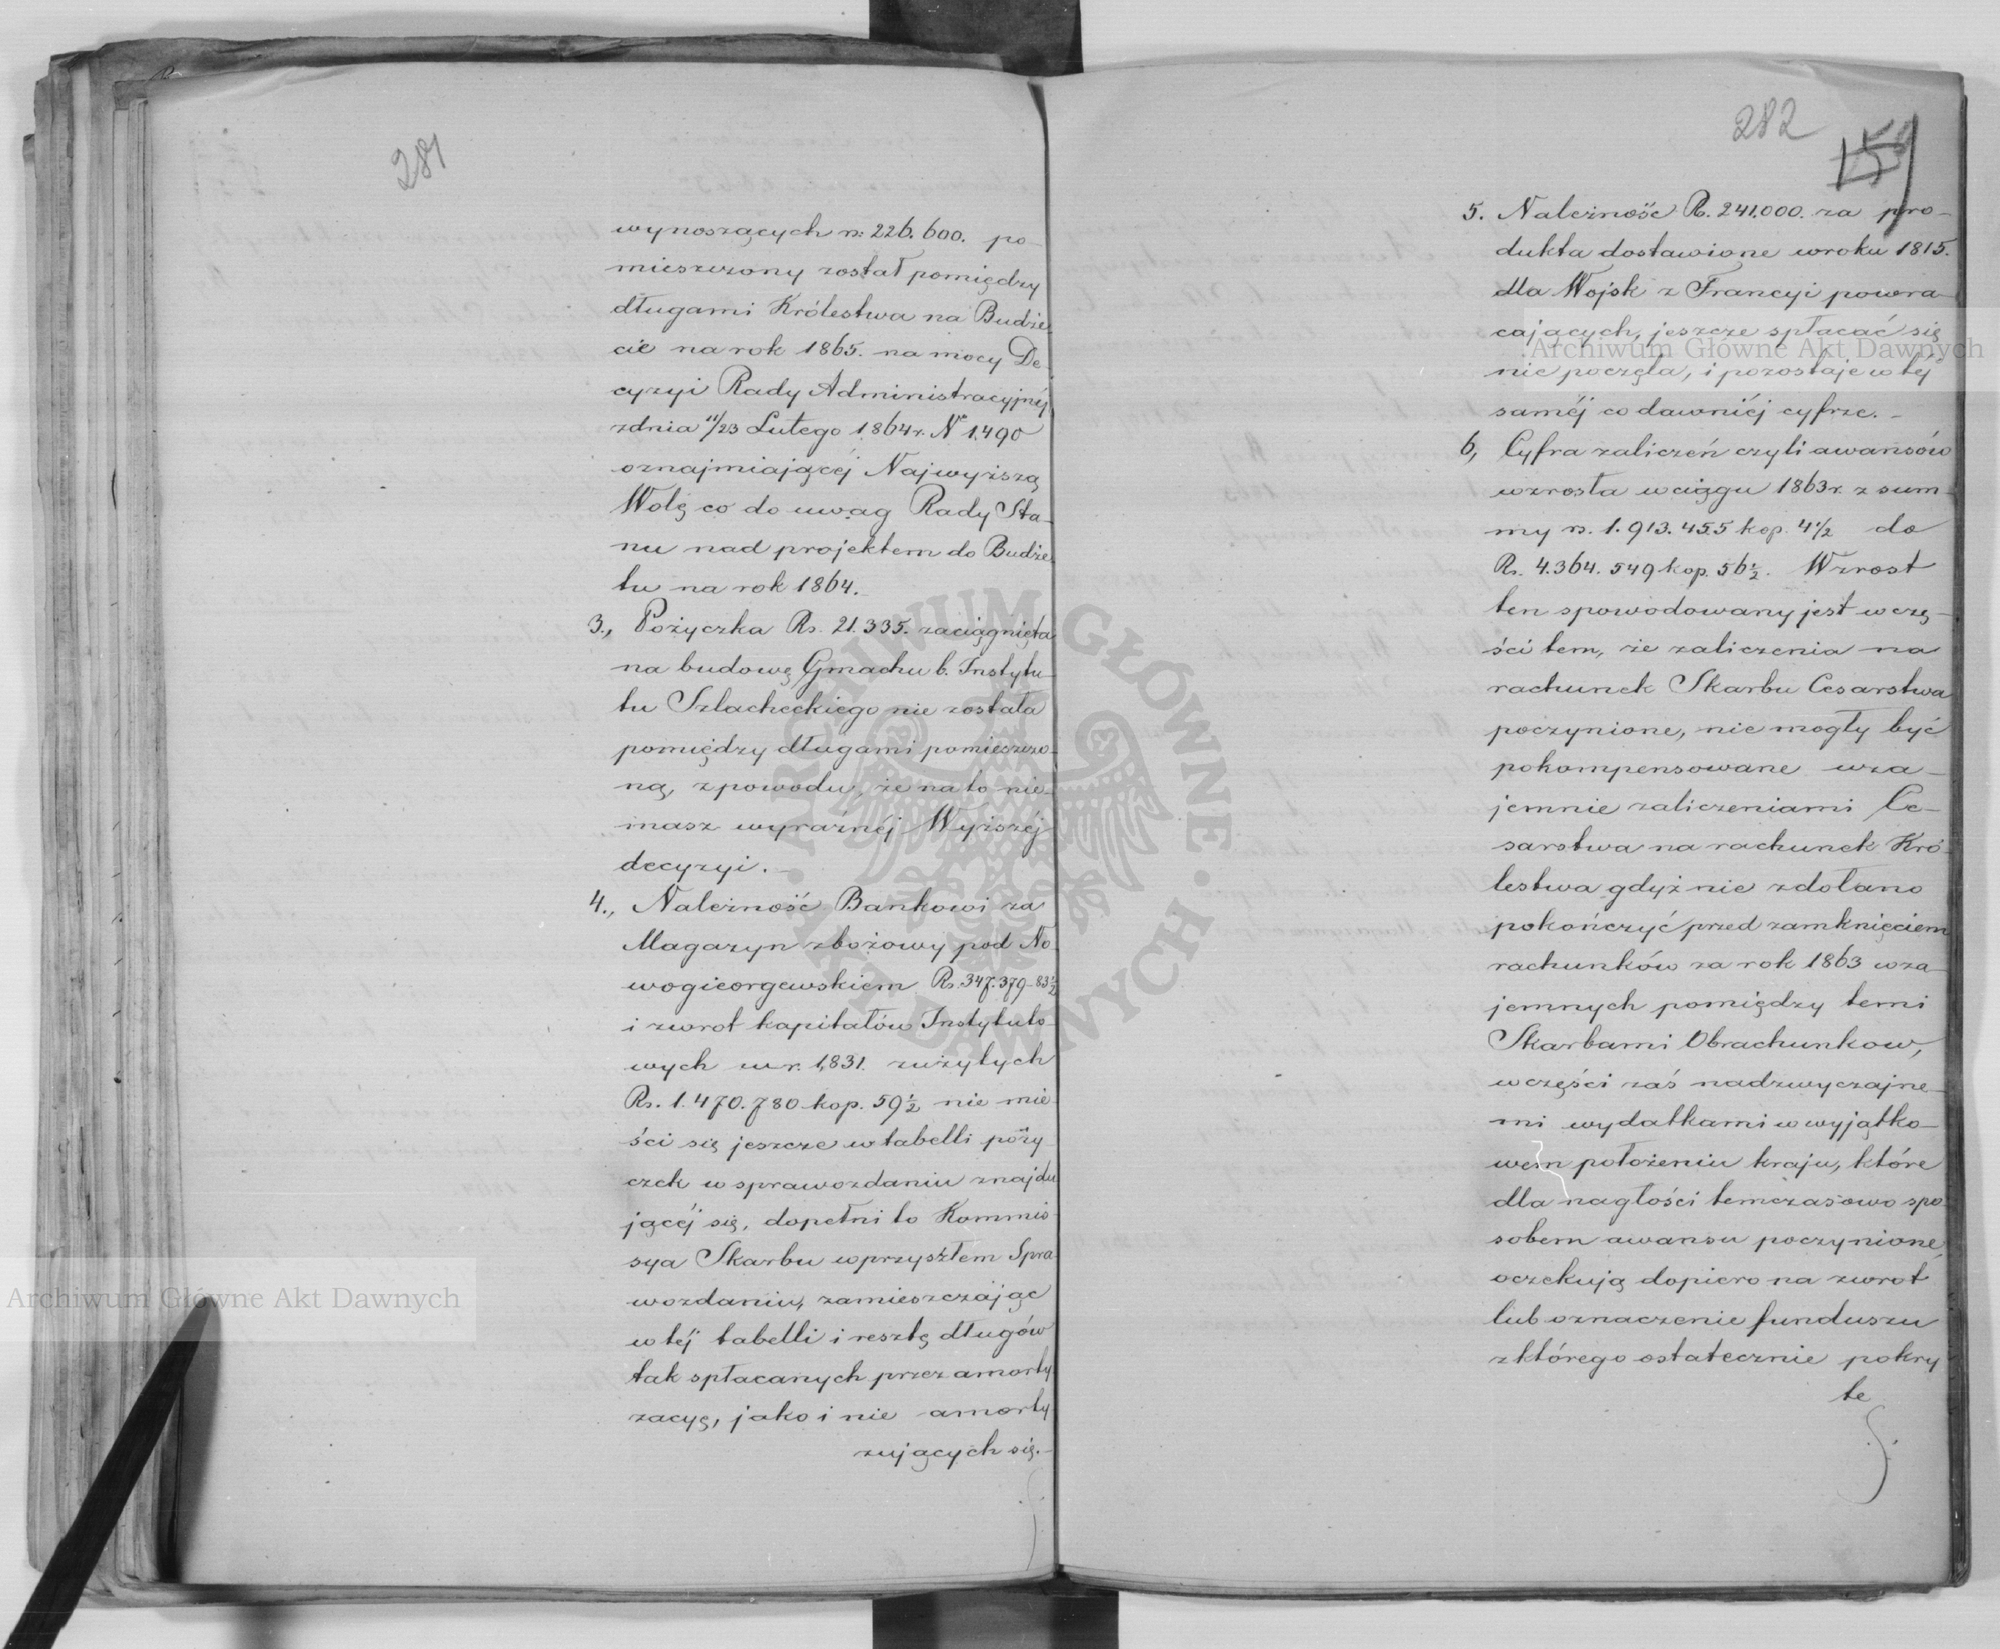 281
wynoszących rs: 226.600. po-
mieszczony został pomiędzy
długami Królestwa na Budże
cie na rok 1865. na mocy De-
cyzyi Rady Administracyjnéj
z dnia 11/23 Lutego 1864 r. No 1.490
oznajmiającéj Najwyższą
Wolę co do uwag Rady Sta-
nu nad projektem do Budże
tu na rok 1864.
3., Pożyczka Rs. 21.335. zaciągnięta
na budowę Gmachu b. Instytu-
tu Szlacheckiego nie została
pomiędzy długami pomieszczo-
ną, z powodu, że na to nie-
masz wyraźnéj Wyższéj
decyzyi.-
4., Należność Bankowi za
Magazyn zbożowy pod No-
wogieorgewskiem Rs. 347.379-83 1/2
i zwrot kapitałów Instytuto-
wych w r. 1,831. zużytych
Rs. 1.470.780 kop. 59 1/2 nie mie-
ści się jeszcze w tabelli poży-
czek w sprawozdaniu znajdu
jącéj się, dopełni to Kommis-
sya Skarbu w przyszłem Spra-
wozdaniu, zamieszczając
w téj tabelli i resztę długów
tak spłacanych przez amorty-
zacyę, jako i nie amorty
zujących się.-
282
159
5. Należność Rs. 241.000. za pro-
dukta dostawione w roku 1815.
dla Wojsk z Francyi powra-
cających, jeszcze spłacać się
nie poczęła, i pozostaje w téj
saméj co dawniéj cyfrze.-
6, Cyfra zaliczeń czyli awansów
wzrosła w ciągu 1863 r. z sum-
my rs. 1.913.455 kop. 4 1/2 do
Rs. 4.364.549 kop. 56 1/2. Wzrost
ten spowodowany jest w czę-
ści tem, że zaliczenia na
rachunek Skarbu Cesarstwa
poczynione, nie mogły być
pokompensowane wza-
jemnie zaliczeniami Ce-
sarstwa na rachunek Kró-
lestwa gdyż nie zdołano
pokończyć przed zamknięciem
rachunków za rok 1863 wza-
jemnych pomiędzy temi
Skarbami Obrachunkow,
w części zaś nadzwyczajne-
mi wydatkami w wyjątko-
wem położeniu kraju, które
dla nagłości temczasowo spo
sobem awansu poczynione,
oczekują dopiero na zwrot
lub oznaczenie funduszu
z którego ostatecznie pokry
te
Archiwum Główne Akt Dawnych
Archiwum Główne Akt Dawnych
ARCHIWUM GŁÓWNE
AKT DAWNYCH